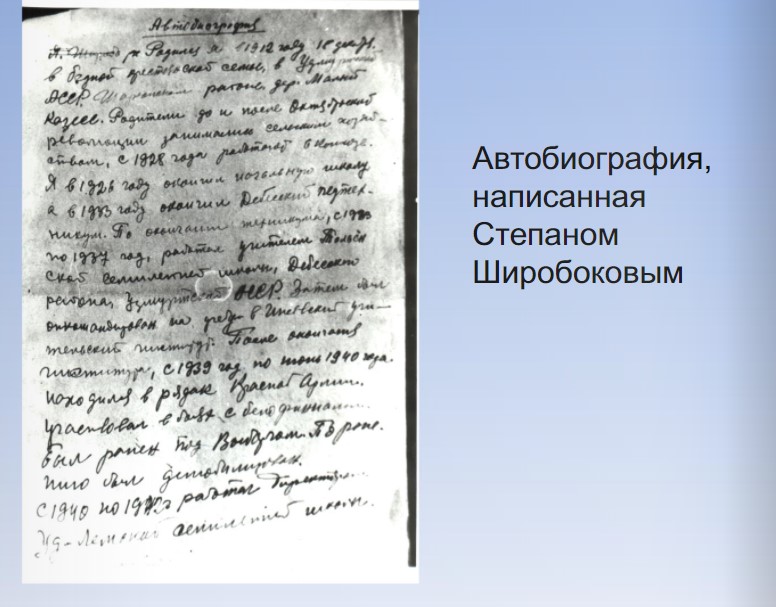 Автобиография
Родился я в 1912 году 18 декаб.
в бедной крестьянской семье, в Удмуртской
АССР. районе, дер. Малый
Родители до и после Октябрьской
революции занимались сельским хозяй-
ством, с 1928 года работают в колхозе.
Я в 1926 году окончил начальную школу
а в 1933 году окончил Дебесский педтех-
никум. По окончании техникума, с 1933
по 1937 год, работал учителем
ской семилетней школы, Дебесского
района, Удмуртской АССР. Затем был
откомандирован на учебу в Ижевский учи-
тельский институт. После окончания
института, с 1939 год по июнь 1940 года.
находился в рядах Красной Армии.
участвовал в боях с белофиннами.
Был ранен под Выборгом. По ране-
нию был демобилизован.
С 1940 по работал директором
семилетней школы.
Автобиография,
написанная
Степаном
Широбоковым